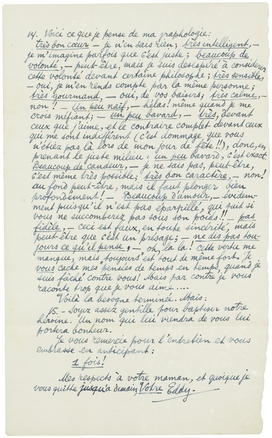 14. Voici ce que je pense de ma graphologie:
très bon cœur — je n'en sais rien; très intelligent, —
je m'imagine parfois que c'est juste; beaucoup de
volonté, — peut-être, mais je suis désespéré à considérer
cette volonté devant certaine philosophe; très sensible,
— oui, je m'en rends compte par la même personne;
très gourmand, — oui, de vos baisers; très calme,
— non! — Un peu naïf, — hélas! même quand je me
crois méfiant; — un peu bavard, — très, devant
ceux que j'aime, et au contraire complet devant ceux
qui me sont indifférents (c'est dommage que vous
n'étiez pas là lors de mon jour de fête!!), donc, en
prenant le juste milieu: un peu bavard: c'est exact.
Beaucoup de candeur, — je ne sais pas, peut-être
c'est même très possible; très bon caractère, — non!
au fond peut-être, mais il faut plonger bien
profondément! — Beaucoup d'amour, — évidem-
ment puisqu'il n'est pas éparpillé, qui sait si
vous ne succomberez pas sous son poids!! — pas
fidèle, — ceci est faux, en toute sincérité; mais
peut-être que c'est un présage; — ne dit pas tou-
jours ce qu'il pense, — oh, là là! cette verbe me
manque, mais toujours est tout de même fort. Je
vous cache mes pensées de temps en temps, quand je
suis fâché contre vous! Mais par contre je vous
raconte trop que je vous aime....
Voilà la besogne terminée. Mais:
15. — Soyez assez gentille pour baptiser notre
héroïne. Un nom qui lui viendra de vous lui
portera bonheur.
Je vous remercie pour l'entretien et vous
embrasse en anticipant:
1 fois!
Mes respects à votre maman, et quoique je
vous quitte jusqu'à demain, Votre Eddy.